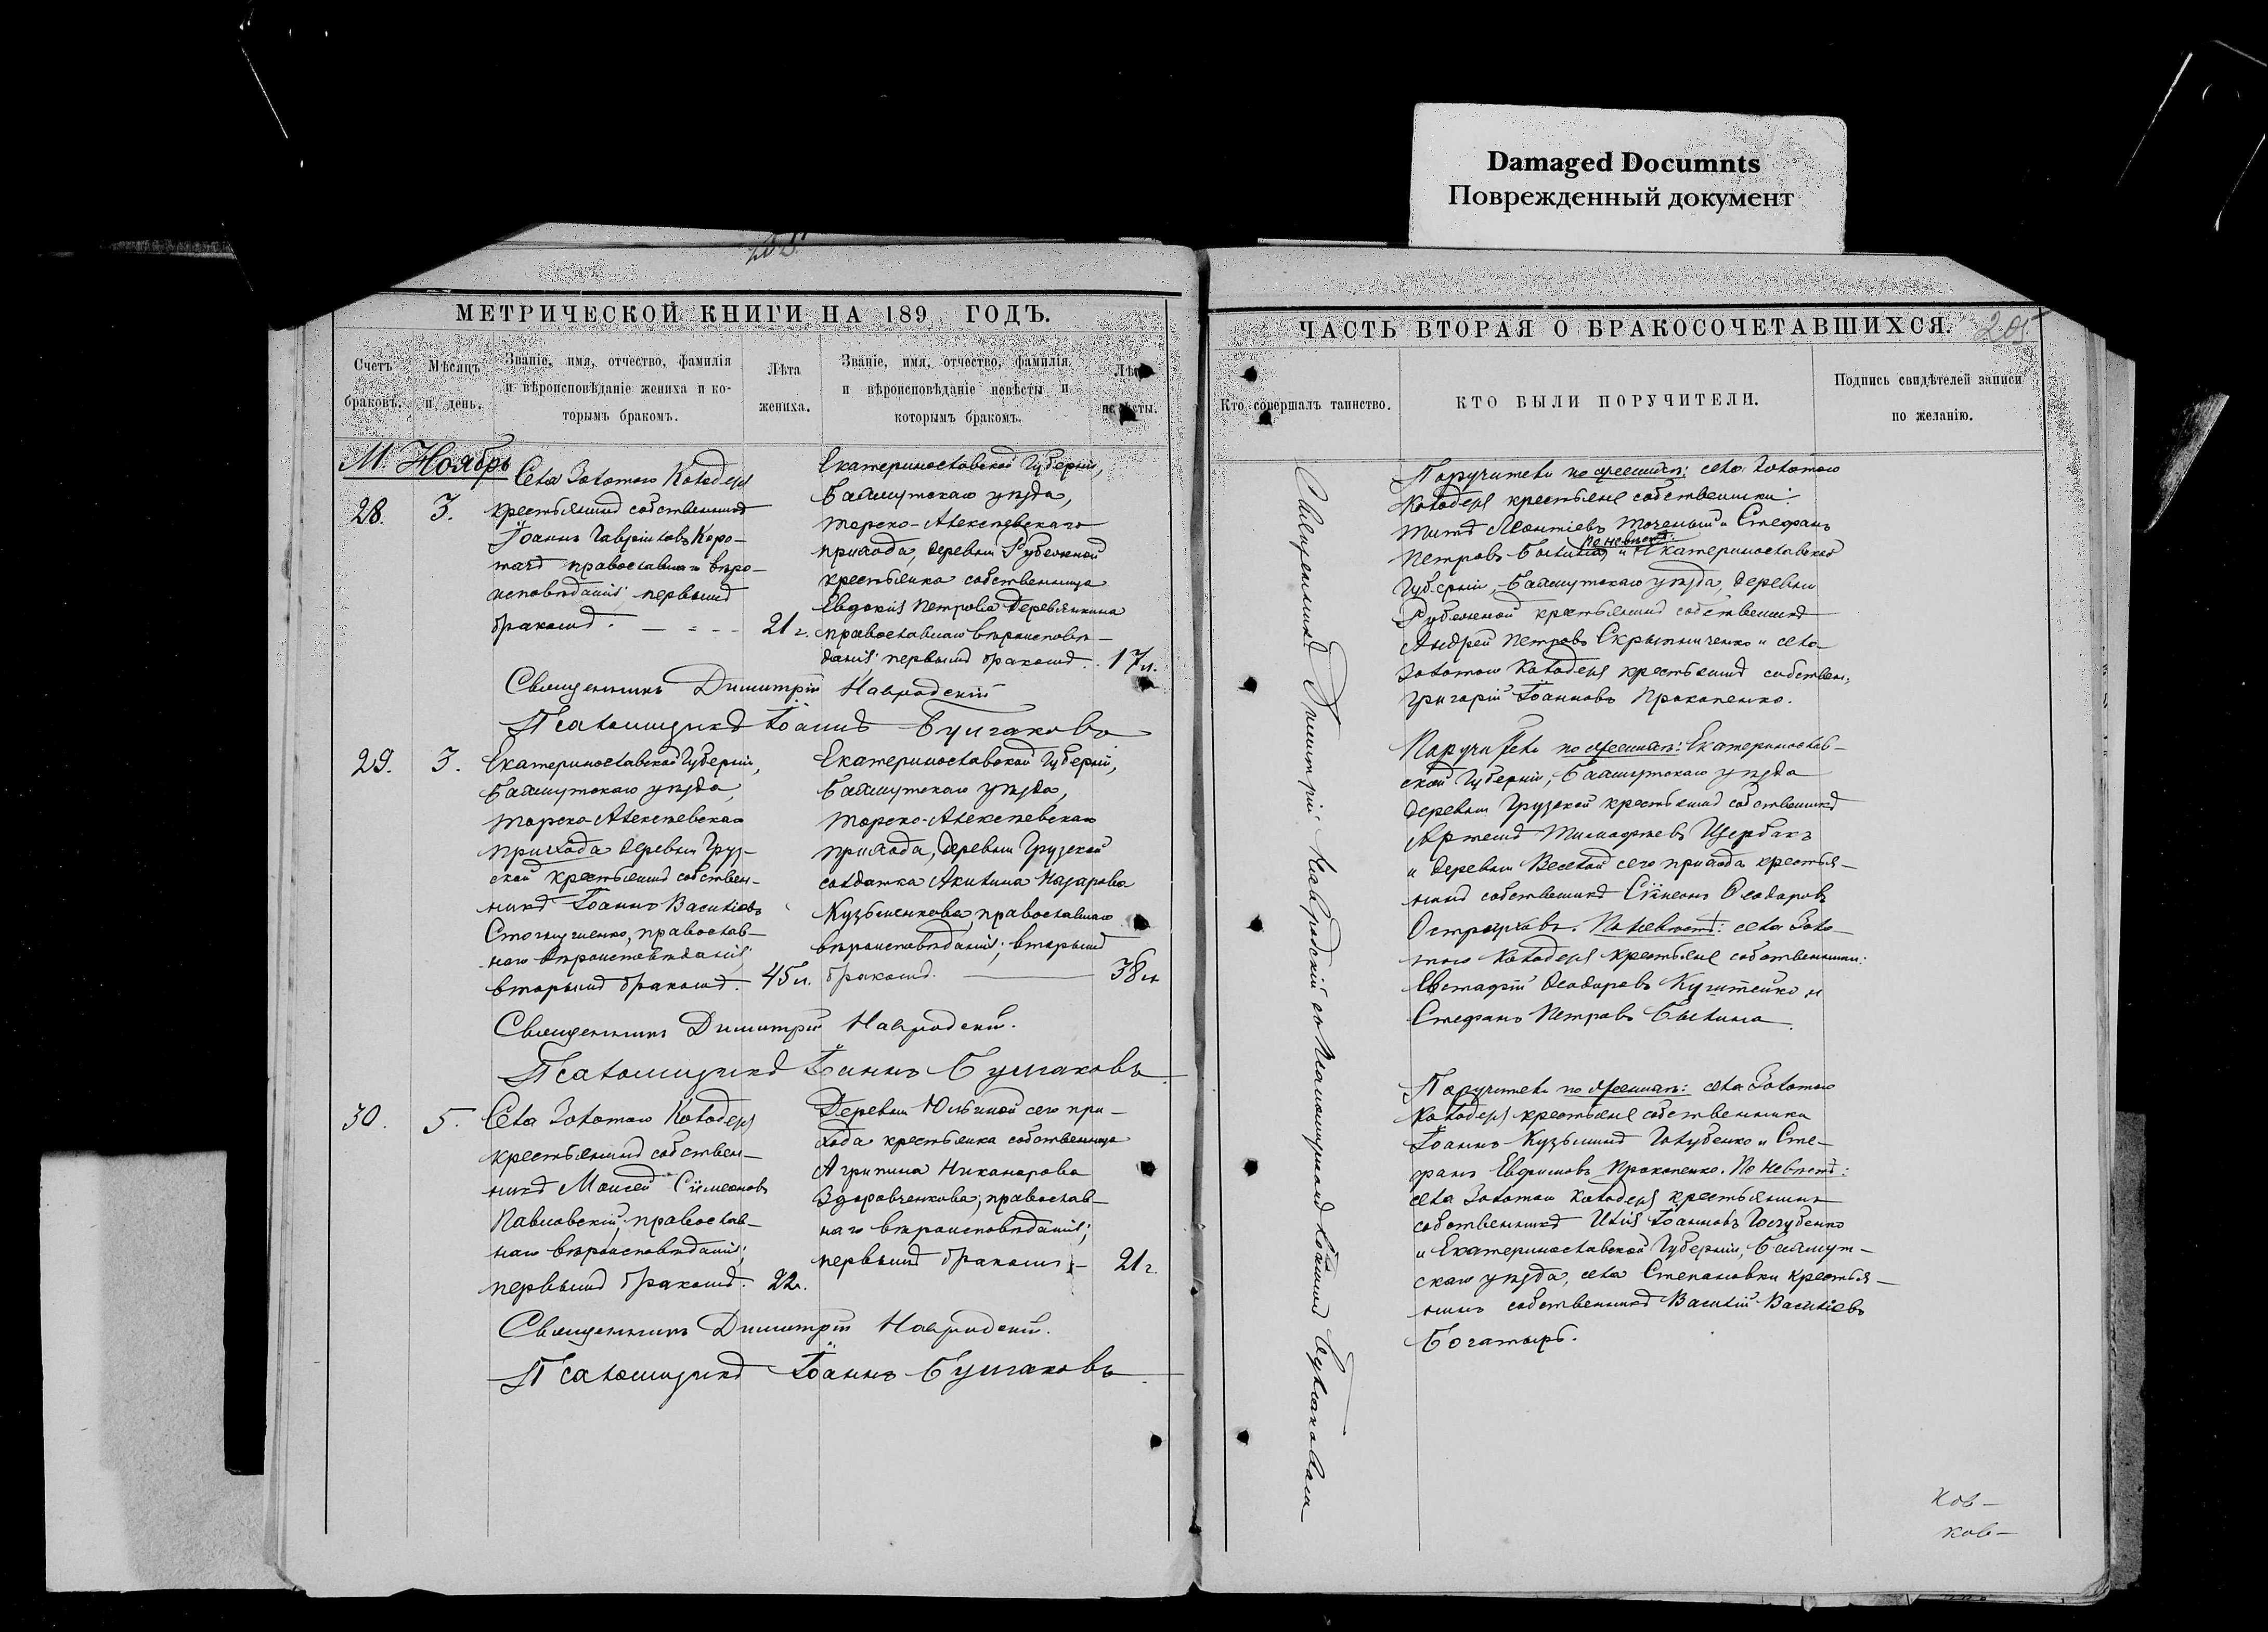 Damaged Documnts
Поврежденный документ
МЕТРИЧЕСКОЙ КНИГИ НА 189 ГОДЪ.
Счетъ браковъ.
Мѣсяцъ и день.
Званіе, имя, отчество, фамилія
и вѣроисповѣданіе жениха и ко-
торымъ бракомъ.
Лѣта
жениха.
Званіе, имя, отчество, фамилія
и вѣроисповѣданіе невѣсты и
которымъ бракомъ.
М. Ноябрь
28. 3.
Села Золотаго Колодезя
крестьянинъ собственникъ
Іоаннъ Гавріиловъ Коро-
тачъ православнаго вѣро-
исповѣданія; первымъ
бракомъ. 21 г.
Екатеринославской Губерніи,
Бахмутскаго уѣзда,
Торско-Алексѣевскаго
прихода, деревни Рубежной
крестьянка собственница
Евдокія Петрова Деревянкина
православнаго вѣроисповѣ-
данія; первымъ бракомъ. 17 л.
Священникъ Димитрій Навродскій
Псаломщикъ Іоаннъ Булгаковъ
29. 3.
Екатеринославской Губерніи,
Бахмутскаго уѣзда,
Торско-Алексѣевскаго
прихода деревни Груз-
ской крестьянинъ собствен-
никъ Іоаннъ Василіевъ
православ-
наго вѣроисповѣданія;
вторымъ бракомъ. 45 л.
Екатеринославской Губерніи,
Бахмутскаго уѣзда,
Торско-Алексѣевскаго
прихода, деревни Грузской
солдатка Акилина Назарова
Кузьменкова, православнаго
вѣроисповѣданія; вторымъ
бракомъ. 38 л.
Священникъ Димитрій Навродскій.
Псаломщикъ Іоаннъ Булгаковъ
30. 5.
Села Золотаго Колодезя
крестьянинъ собствен-
никъ Моисей Симеоновъ
Павловскій, православ-
наго вѣроисповѣданія;
первымъ бракомъ. 22 г.
Деревни Юльиной сего при-
хода крестьянка собственница
Агрипина Никанорова
Здоровченкова, православ-
наго вѣроисповѣданія;
первымъ бракомъ 21 г.
Священникъ Димитрій Навродскій.
Псаломщикъ Іоаннъ Булгаковъ
ЧАСТЬ ВТОРАЯ О БРАКОСОЧЕТАВШИХСЯ. 205
Кто совершалъ таинство.
КТО БЫЛИ ПОРУЧИТЕЛИ.
Подпись свидѣтелей записи
по желанію.
Священникъ Димитрій Навродскій съ псаломщикомъ Іоанномъ Булгаковымъ
Поручители по женихѣ: села Золотаго
Колодезя крестьяне собственники:
Титъ Леонтіевъ Точеный и Стефанъ
Петровъ Былина, по невѣстѣ: Екатеринославской
Губерніи, Бахмутскаго уѣзда, деревни
Рубежной крестьянинъ собственникъ
Андрей Петровъ Скрыпниченко и села
Золотаго Колодезя крестьянинъ собствен.
Григорій Іоанновъ Прокопенко.
Поручители по женихѣ: Екатеринослав-
ской Губерніи, Бахмутскаго уѣзда
деревни Грузской крестьянинъ собственникъ
Артемъ Тимофеевъ Щербакъ
и деревни Веселой сего прихода крестья-
нинъ собственникъ Симеонъ Ѳеодоровъ
По невѣстѣ: села Золо-
таго Колодезя крестьяне собственники:
Евстафій Ѳеодоровъ и
Стефанъ Петровъ Былина.
Поручители по женихѣ: села Золотаго
Колодезя крестьяне собственники
Іоаннъ Кузьминъ Голубенко и Сте-
фанъ Ефимовъ Прокопенко. По невѣстѣ:
села Золотаго Колодезя крестьянинъ
собственникъ Илія Іоанновъ Голубенко
и Екатеринославской Губерніи, Бахмут-
скаго уѣзда, села Степановки крестья-
нинъ собственникъ Василій Василіевъ
Богатырь.